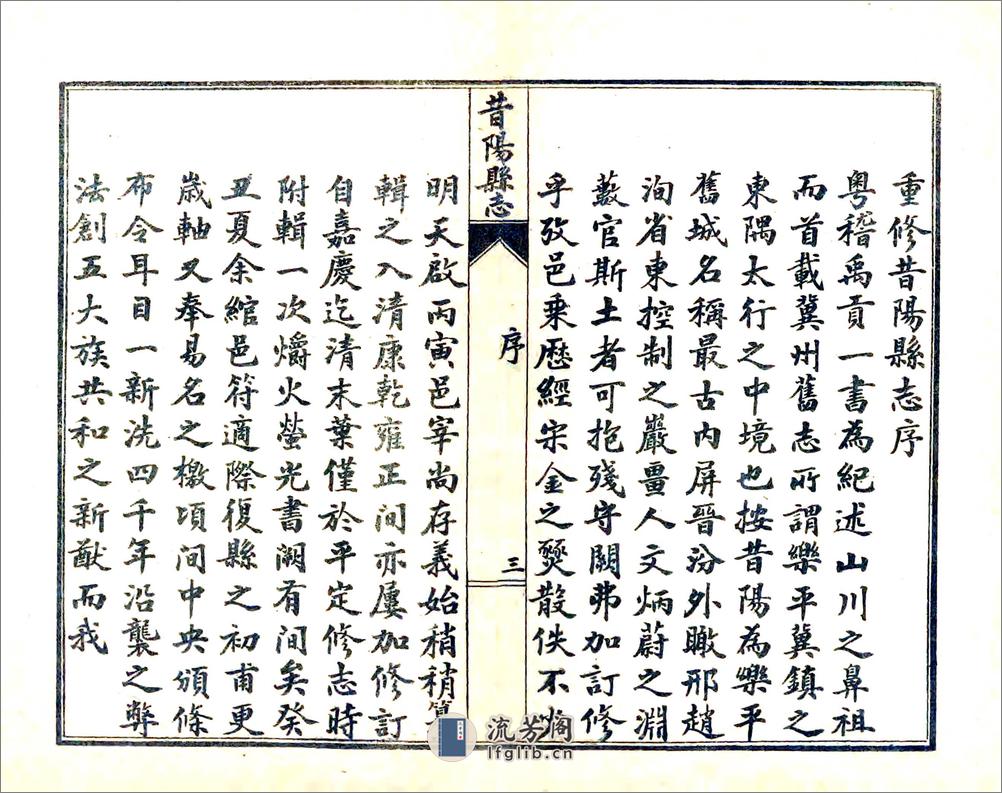 重修昔陽縣志序
粵稽禹貢一書為紀述山川之鼻祖
而首載冀州舊志所謂樂平冀鎮之
東隅太行之中境也按昔陽為樂平
舊城名稱最古內屏晉汾外瞰邢趙
洵省東控制之巖畺人文炳蔚之淵
藪官斯土者可抱殘守闕弗加訂修
乎攷邑乗歷經宋金之燹散佚不
昔陽縣志
序
三
明天啟丙寅邑宰尚存義始稍稍纂
輯之入清康乾雍正間亦屢加修訂
自嘉慶迄清末葉僅於平定修志時
附輯一次爝火螢光書闕有間矣癸
丑夏余綰邑符適際復縣之初甫更
歲軸又奉易名之檄項間中央頒條
布令耳目一新洗四千年沿襲之弊
法創五大族共和之新猷而我
流芳阁
lfglib.cn